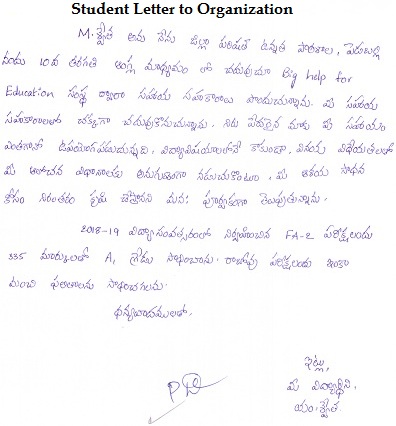 Student Letter to Organization
M. శ్వేత అను నేను జిల్లా పరిషత్ ఉన్నత పాఠశాల,
నందు 10వ తరగతి ఆంగ్ల మాధ్యమం లో చదువుచూ Big help for
Education సంస్థ ద్వారా సహాయ సహకారాలు పొందుచున్నాను. మీ సహాయ
సహకారాలలో చక్కగా చదువుకొనుచున్నాను. నిరు పేదలైన మాకు మీ సహాయం
ఎంతగానో ఉపయోగపడుచున్నది. విద్యావిషయాలలోనే కాకుండా, వినయ విధేయతలలో
మీ ఆలోచన విధానాలకు అనుగుణంగా నడుచుకొంటూ, మీ ఆశయ సాధన
కోసం నిరంతరం కృషి చేస్తానని మనః పూర్వకంగా తెలుపుతున్నాను.
2018-19 విద్యాసంవత్సరంలో నిర్వహించిన FA-2 పరీక్షలందు
335 మార్కులతో A, గ్రేడు సాధించాను. రాబోవు పరీక్షలందు ఇంకా
మంచి ఫలితాలను సాధించగలను.
ధన్యవాదములతో.
ఇట్లు,
మీ విద్యార్థిని,
యం. శ్వేత.